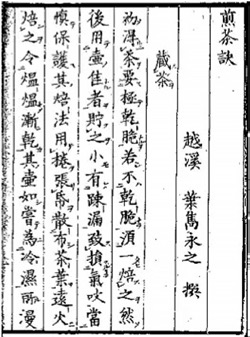 煎茶訣
越溪 葉雋永之 撰
藏茶
初得茶要極乾脆若不乾脆須一焙之然
後用壺佳者貯之小有疎漏致損氣味當
慎保護其焙法用捲張帋散布茶葉遠火
焙之令熅熅漸乾其壺如嘗為冷濕所漫